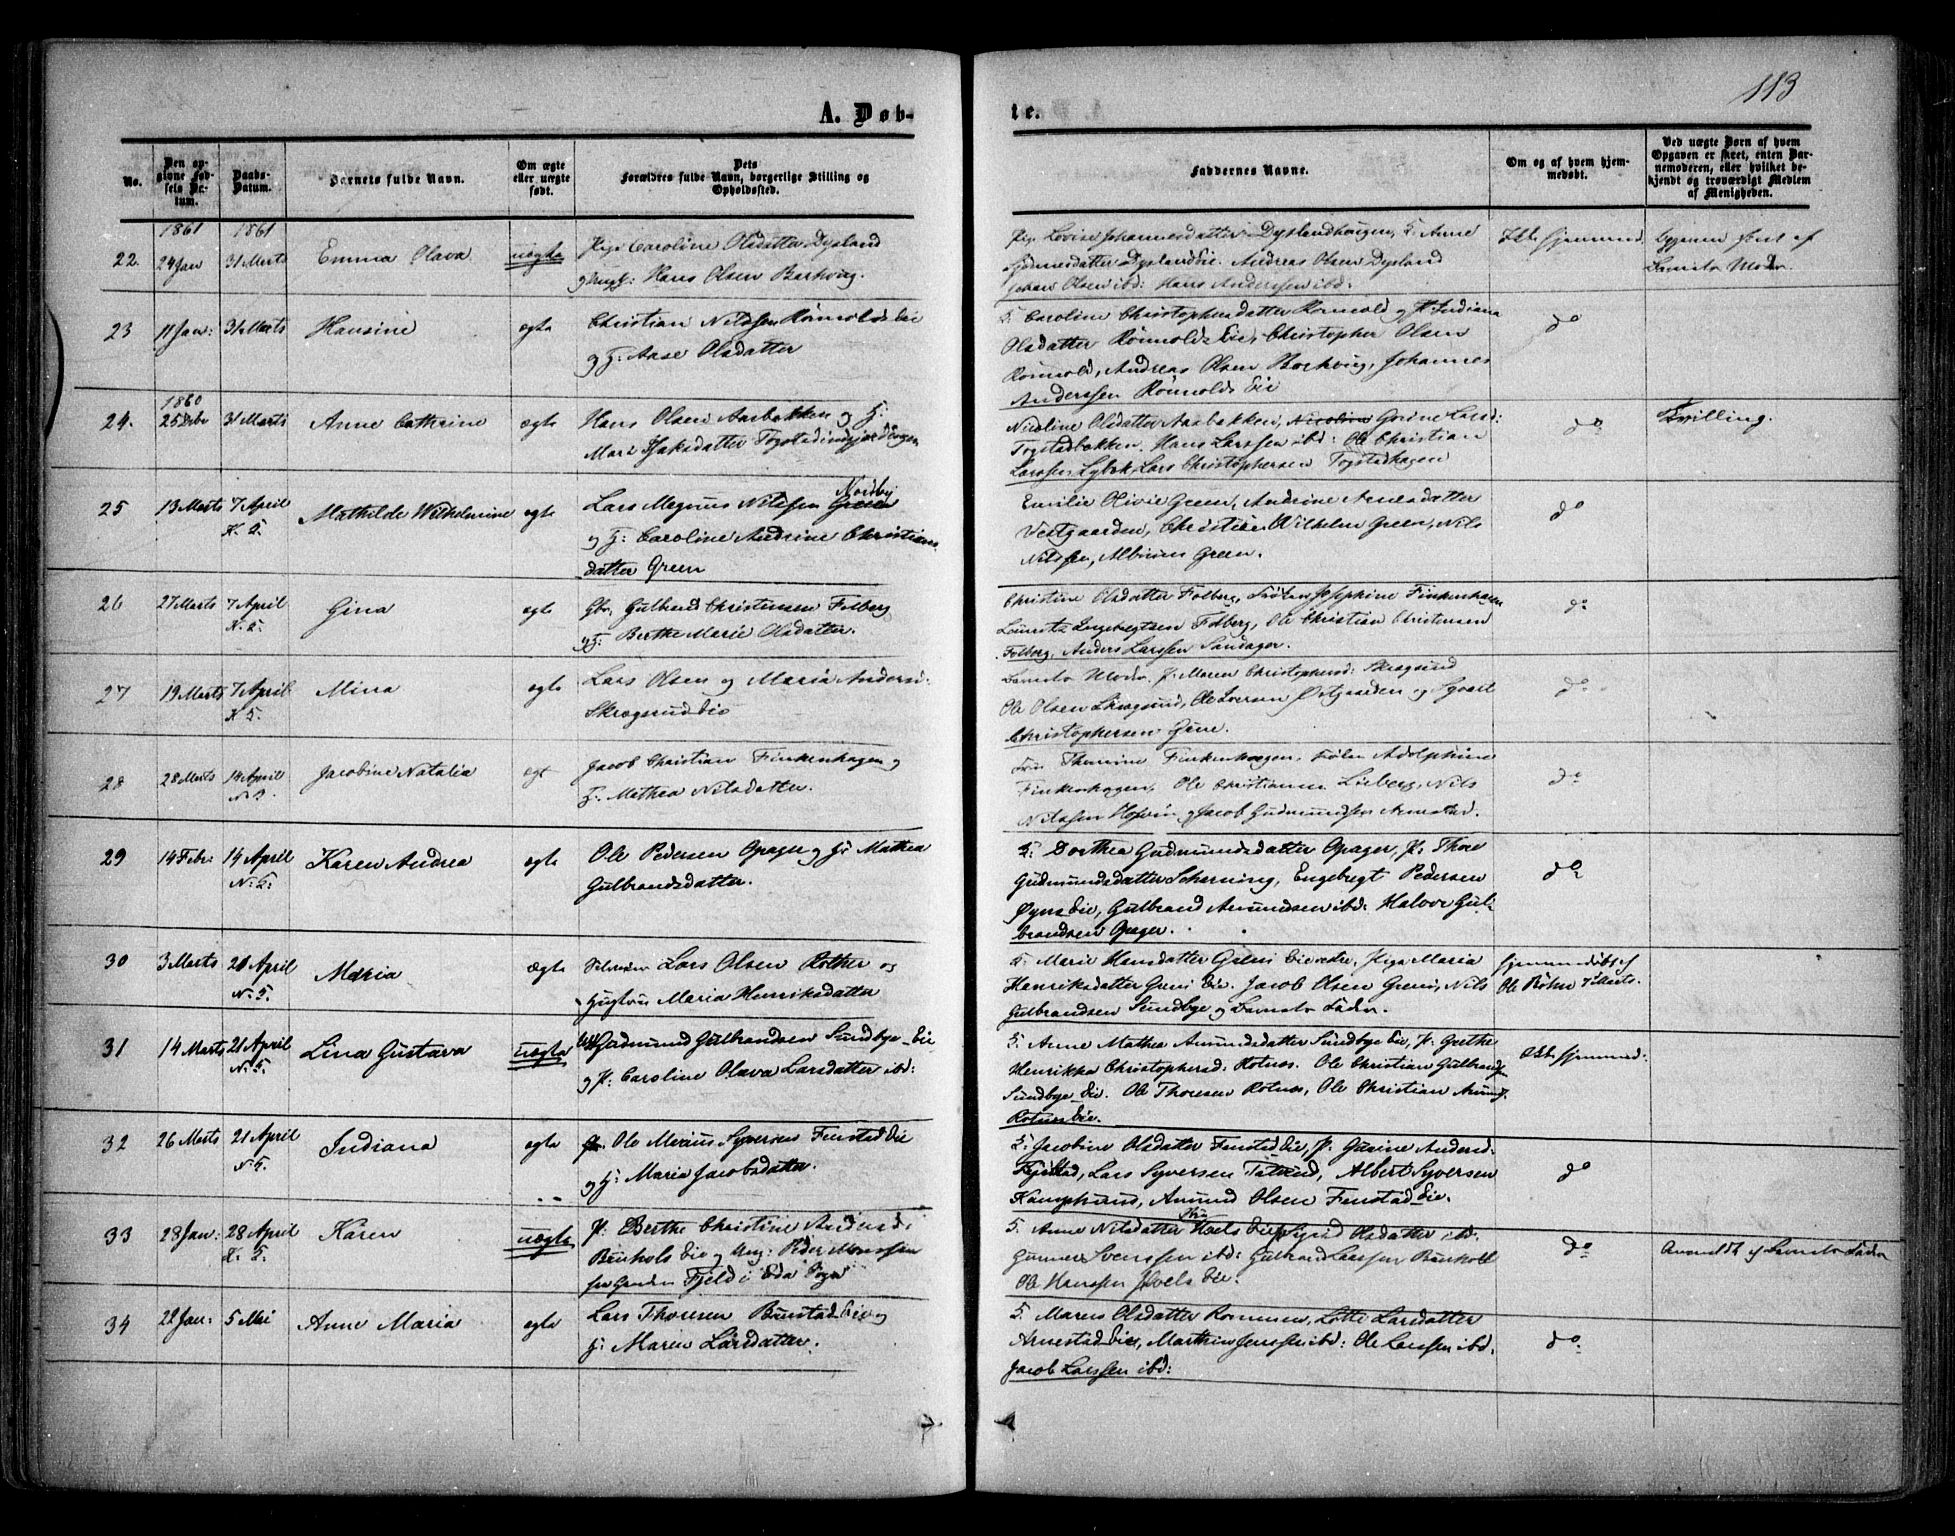 113
A. Døb-
te.
No.
Den op-
givne Fød-
sels Da-
tum.
Daabs-
Datum.
Barnets fulde Navn.
Om ægte
eller uægte
født.
Dets
Forældres fulde Navn, borgerlige Stilling og
Opholdssted.
Faddernes Navne.
Om og af hvem hjem-
medøbt.
Ved uægte Børn af hvem
Opgaven er skeet, enten Bar-
nemoderen, eller hvilket be-
kjendt og troværdigt Medlem
af Menigheden.
1861 1861
22. 24 Jan 31 Marts Emma Olava uægte Pige Caroline Olsdatter Dysland
og Ungk: Hans Olsen Barkvig.
Pige Lovise Johannesdatter Dyslandhaugen, H: Anne
Dyslandeie. Andreas Olsen Dysland
Johan Olsen ibd: Hans Anderssen ibd:
Ikke hjemmed. Opgaven skeet af
Barnets Moder.
23 11 Jan: 31 Marts Hansine egte Christian Nilssen Römolds Eie
og H: Aase Olsdatter
K: Caroline Christophersdatter Romold og P. Indiana
Olsdatter Römolds Eie, Christopher Olsen
Römold, Andreas Olsen Borkvig, Johannes
Anderssen Römolds Eie
do
1860
24. 25 Dcbr 31 Marts Anne Cathrine egte Hans Olsen Aasbakken og H:
Mari Isaksdatter
Nicoline Olsdatter Aasbakken, Nicoline Grine Larsd:
Togstadbakken. Hans Larssen ibd: Ole Christian
Larssen Lybek, Lars Christophersen Togstadhagen
do Tvilling.
25 13 Marts 7 April
K. 5.
Mathilde Wilhelmine egte Lars Magnus Nilssen Green Nordby
og H: Caroline Andrine Christians
datter Green
Emilie Olivie Green, Andrine Arnesdatter
Vestgaarden, Christian Wilhelm Green, Nils
Nilssen, Albinus Green.
do
26 27 Marts 7 April
K. 5.
Gina egte Gbr. Gulbrand Christensen Folberg
og H: Berthe Marie Olsdatter.
Christine Olsdatter Folberg, Frøken Josephine Finkenhagen
Lauritz Engebregtsen Folberg, Ole Christian Christensen
Folberg, Anders Larssen Sandager.
do
27 19 Marts 7 April
K. 5.
Mina egte Lars Olsen og Maria Andersd:
Skrogsrud Eie
Barnets Moder, P. Maren Christophersd: Skrogsrud
Ole Olsen Skrogsrud, Ole Iversen Østgaarden og Syvert
Christophersen
do
28 28 Marts 14 April
Jacobine Natalia egt Jacob Christian Finkenhagen og
H. Mathea Nilsdatter.
Thomine Finkenhagen, Frøken Adolphine
Finkenhagen, Ole Christiansen Lieberg, Nils
Nilssen Hofvin, og Jacob Gudmundsen Arnestad.
do
29 14 Febr: 14 April
N. 5.
Karen Andrea egte Ole Pedersen Opager og H: Mathea
Gulbrandsdatter.
K: Dorthea Gudmundsdatter Opager, P. Thore
Gudmundsdatter Scherning, Engebregt Pedersen
Øyns Eie, Gulbrand Amundsen ibd: Halvor Gul-
brandsen Opager.
do
30 3 Marts 20 April
N. 5.
Maria ægte Selveier Lars Olsen Rother og
Hustru Maria Henriksdatter
K. Marie Hansdatter Greni Eie, Pige Maria
Henriksdatter Greni Eie. Jacob Olsen Greni, Nils
Gulbrandsen Sundbye og Barnets Fader.
hjemmedøbt af
Ole Bøhn 7 Marts.
31 14 Marts 21 April
N. 5.
Lina Gustava uægte Gudmund Gulbrandsen Sundbye-Eie
og P. Caroline Olava Larsdatter ibd:
K: Anne Mathea Amundsdatter Sundbye Eie, P. Grethe
Henrikka Christophersd: Rotnes. Ole Christian Gulbrands.
Sundbye Eie. Ole Thoresen Rotnes, Ole Christian Amund
Rotnes Eie.
Ikke hjemmed:
32 26 Marts 21 April
N. 5.
Indiana egte Ole Marius Syversen Fenstad Eie
og H: Maria Jacobsdatter.
K: Jacobine Olsdatter Fenstad Eie, P. Gusine Andersd:
Fenstad, Lars Syversen Tatsrud, Albert Syversen
Kamphaug, Amund Olsen Fenstad Eie.
do
33 28 Jan: 28 April
K. 5.
Karen uægte P. Berthe Christine Andersd:
Bønhols Eie og Ung: Peder Monssen
fra Gaarden Fjeld i Eda Sogn
K. Anne Nilsdatter Hoels Eie, Pig Sigrid Olsdatter ibd.
Gunner Svenssen ibd: Gulbrand Larssen Bønholt
Ole Hanssen Hoels Eie.
do Anmeldt af Barnets Fader
34 22 Jan: 5 Mai Anne Maria egte Lars Thoresen Bunstad Eie og
H: Maren Larsdatter.
K. Maren Olsdatter Rommen, Lotte Larsdatter
Arnestad Eie, Marthin Jenssen ibd: Ole Larssen ibd.
Jacob Larssen ibd:
do